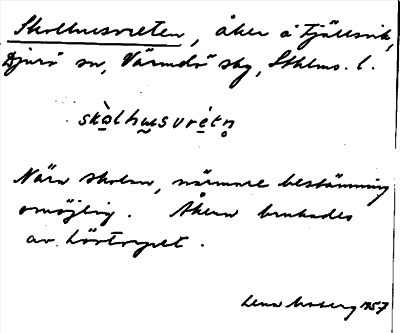 Skolhusvreten, åker å Fjällsvik,
Djurö sn, Värmdö skg, Sthlms. l.
skòlhusvrétn̥
Nära skolan, närmare bestämning
omöjlig. Åkern brukades
av Lövtorpet.
Lena Moberg 1957